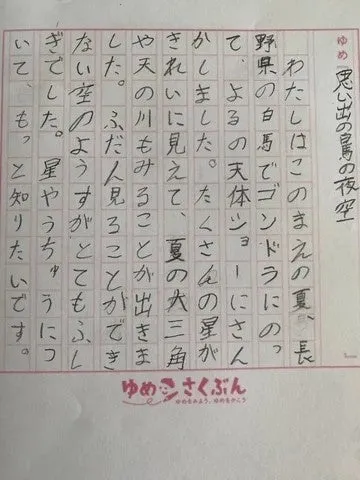 ゆめ『思い出の白馬の夜空』
わたしはこのまえの夏、長
野県の白馬でゴンドラにのっ
て、よるの天体ショーにさん
かしました。たくさんの星が
きれいに見えて、夏の大三角
や天の川もみることが出きま
した。ふだん見ることができ
ない空のようすがとてもふし
ぎでした。星やうちゅうにつ
いて、もっと知りたいです。
ゆめさくぶん
ゆめをみよう、ゆめをかこう